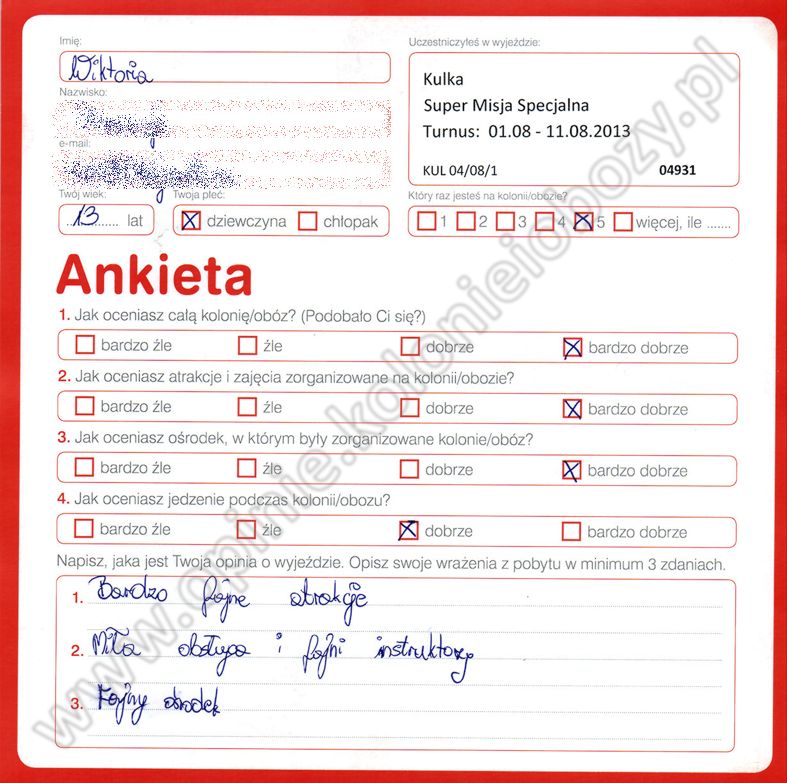 Imię:
Wiktoria
Nazwisko:
e-mail:
Twój wiek:
13 lat
Twoja płeć:
dziewczyna chłopak
Uczestniczyłeś w wyjeździe:
Kulka
Super Misja Specjalna
Turnus: 01.08 - 11.08.2013
KUL 04/08/1 04931
Który raz jesteś na kolonii/obozie?
1 2 3 4 5 więcej, ile .......
Ankieta
1. Jak oceniasz całą kolonię/obóz? (Podobało Ci się?)
bardzo źle źle dobrze bardzo dobrze
2. Jak oceniasz atrakcje i zajęcia zorganizowane na kolonii/obozie?
bardzo źle źle dobrze bardzo dobrze
3. Jak oceniasz ośrodek, w którym były zorganizowane kolonie/obóz?
bardzo źle źle dobrze bardzo dobrze
4. Jak oceniasz jedzenie podczas kolonii/obozu?
bardzo źle źle dobrze bardzo dobrze
Napisz, jaka jest Twoja opinia o wyjeździe. Opisz swoje wrażenia z pobytu w minimum 3 zdaniach.
1. Bardzo fajne atrakcje
2. Miła obsługa i fajni instruktorzy
3. Fajny ośrodek
www.opinie.kolonieiobozy.pl